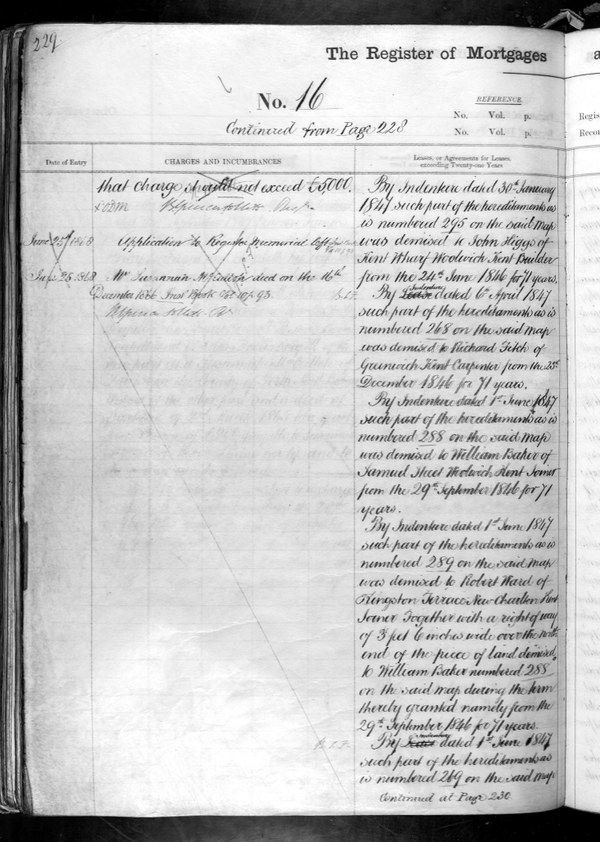 229
The Register of Mortgages
No. 16
REFERENCE.
No. Vol. p.
Continued from Page 228
No. Vol. p.
Date of Entry
CHARGES AND INCUMBRANCES
Leases, or Agreements for Leases,
exceeding Twenty-one Years
that charge should not exceed £5,000.
June 25th 1868
Application to Register Memorial left
June 25 1868
Mrs Susannah died on the 16th
December
By Indenture dated 30th January
1847 such part of the hereditaments as
is numbered 295 on the said Map
was demised to John Higgs of
Kent Wharf Woolwich Kent Builder
from the 24th June 1846 for 71 years.
By Lease Indenture dated 6th April 1847
such part of the hereditaments as is
numbered 268 on the said Map
was demised to Richard Fitch of
Greenwich Kent Carpenter from the 25th
December 1846 for 71 years.
By Indenture dated 1st June 1847
such part of the hereditaments as is
numbered 288 on the said Map
was demised to William Baker of
Samuel Street Woolwich Kent
from the 29th September 1846 for 71
years.
By Indenture dated 1st June 1847
such part of the hereditaments as is
numbered 289 on the said Map
was demised to Robert Ward of
Kingston Terrace New Charlton Kent
Joiner Together with a right of way
of 3 feet 6 inches wide over the north
end of the piece of land demised
to William Baker numbered 288
on the said Map during the term
thereby granted namely from the
29th September 1846 for 71 years.
By Indenture dated 1st June 1847
such part of the hereditaments as
is numbered 269 on the said Map
Continued at Page 230